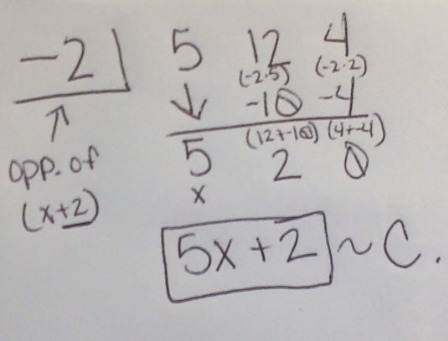 -2 5 12 4
(-2·5) (-2·2)
↓ -10 -4
↑ 5 (12+-10) (4+-4)
opp. of x 2 0
(x+2)
5x+2 ~ C.